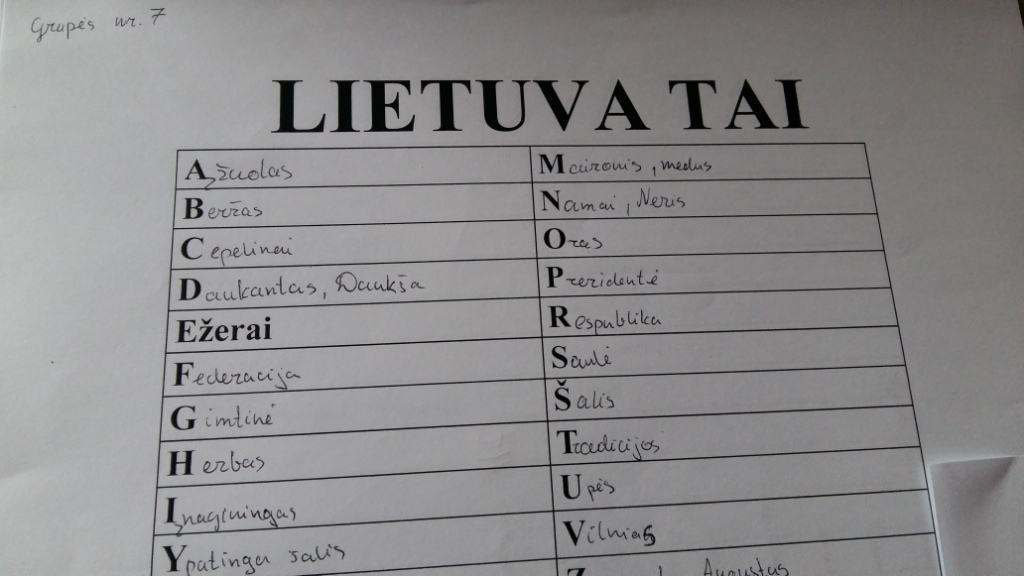 Grupės nr. 7
LIETUVA TAI
Ąžuolas
Beržas
Cepelinai
Daukantas, Daukša
Ežerai
Federacija
Gimtinė
Herbas
Įnaginingas
Ypatinga šalis
Maironis, medus
Namai, Neris
Oras
Prezidentė
Respublika
Saulė
Šalis
Tradicijos
Upės
Vilnias
Augustas